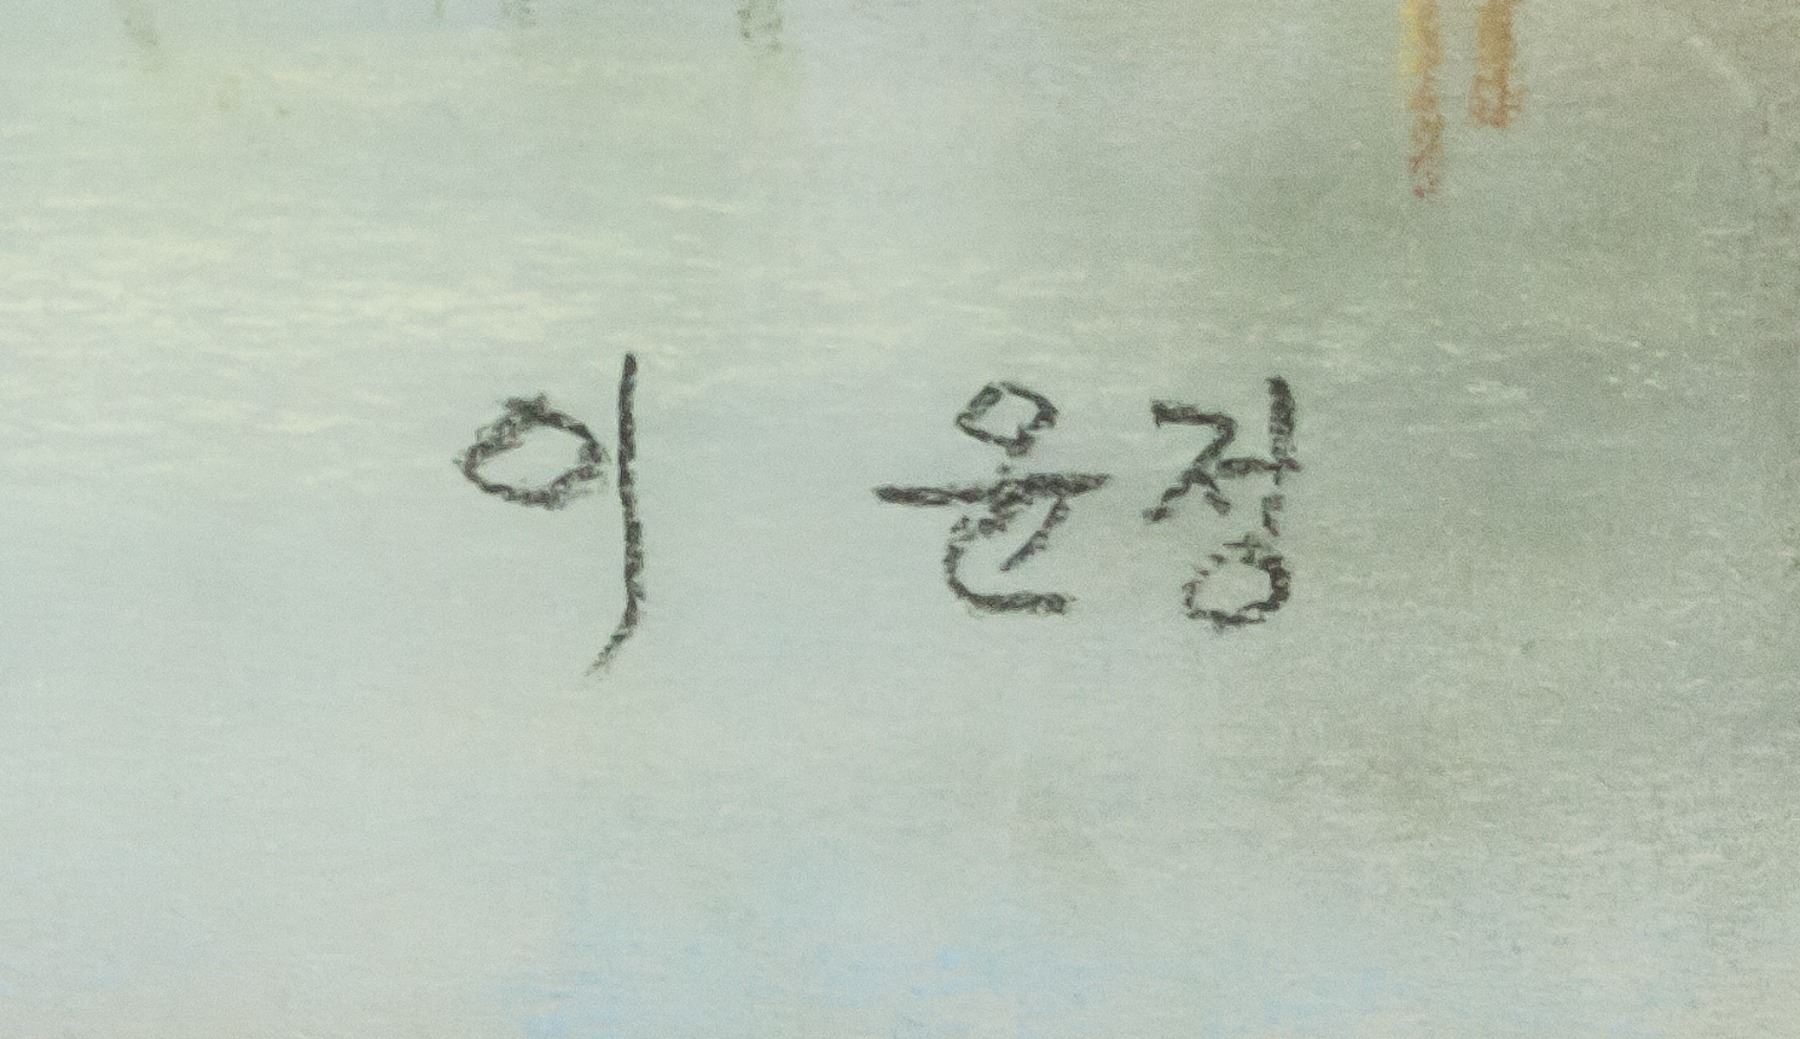 이 윤정